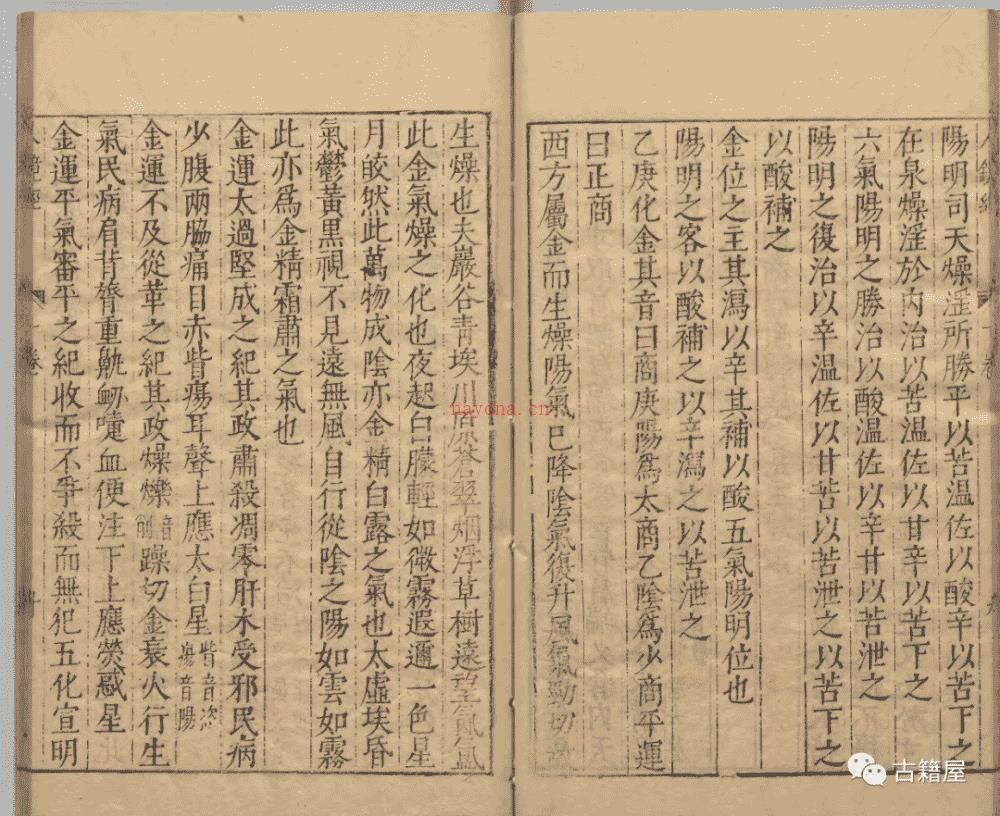 陽明司天燥淫所勝平以苦温佐以酸辛以苦下之
在泉燥淫於内治以苦温佐以甘辛以苦下之
六氣陽明之勝治以酸温佐以辛甘以苦泄之
陽明之復治以辛温佐以甘苦以苦泄之以苦下之
以酸補之
金位之主其瀉以辛其補以酸五氣陽明位也
陽明之客以酸補之以辛瀉之以苦泄之
乙庚化金其音曰商庚陽爲太商乙陰爲少商平運
曰正商
西方屬金而生燥陽氣已降陰氣復升風氣勁切故
生燥也夫巖谷青埃川源蒼翠烟浮草樹遠望氤氲
此金氣燥之化也夜起白朦輕如微霧遐邇一色星
月皎然此萬物成陰亦金精白露之氣也太虛埃昏
氣鬱黃黑視不見遠無風自行從陰之陽如雲如霧
此亦爲金精霜肅之氣也
金運太過堅成之紀其政肅殺凋零肝木受邪民病
少腹兩脇痛目赤眥瘍耳聾上應太白星眥音次瘍音陽
金運不及從革之紀其政燥爍音削躁切金衰火行生
氣民病肩背瞀重鼽衂嚏血便注下上應熒惑星
金運平氣審平之紀收而不爭殺而無犯五化宣明
古籍屋